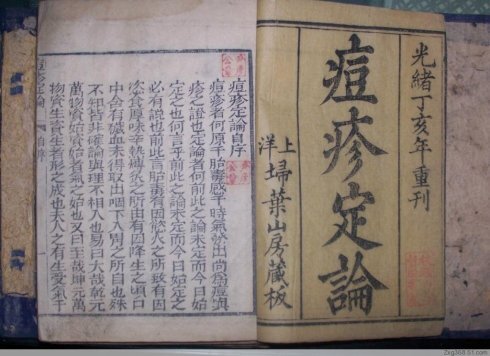 光緒丁亥年重刊
痘疹定論
上洋掃葉山房藏板
痘疹定論自序
痘疹者何原乎胎毒感乎時氣號出尚爲痘與
疹之證也定論者何前此之論未定而今日始
定之也何言乎前此之論未定而今日始定之
必有説也前此言胎毒有因慾火之所致有因
恣食厚味辛熱
有因降生之頃口
中含有穢血未得取出咽下入胃之所自也殊
不知特非確論與理不相入也易曰大哉乾元
萬物資始資始者氣之始也又曰至哉坤元萬
物資生資生者形之成也夫人之有生受氣于
痘疹定論
自序
一
Zxg368.51.com